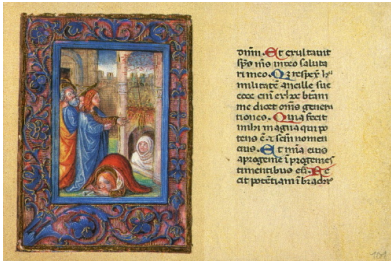 dnm. Et exultauit
sps ms in deo saluta
ri meo. Qz respex hu
militate ancille sue
ecce eni ex hoc btam
me dicet oms genera
tiones. Quia fecit
mihi magna qui po
tens e. et scm nomen
eius. Et mia eius
a progenie i progenies
timentibus eu. Fe
cit potentiam i brachio